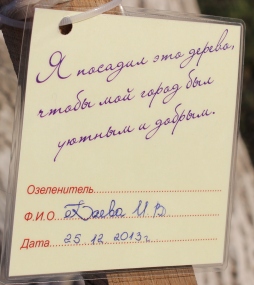 Я посадил это дерево,
чтобы мой город был
уютным и добрым.
Озеленитель
Ф.И.О. Баева И В
Дата 25 12 2013г